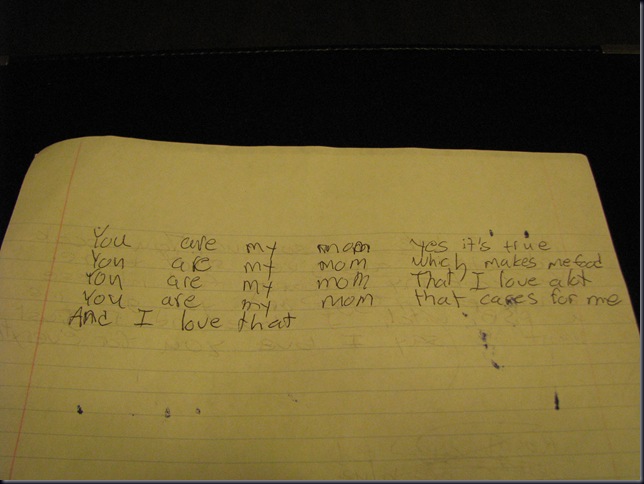 You are my mom yes it's true
You are my mom which makes me food
You are my mom That I love alot
You are my mom that cares for me
And I love that